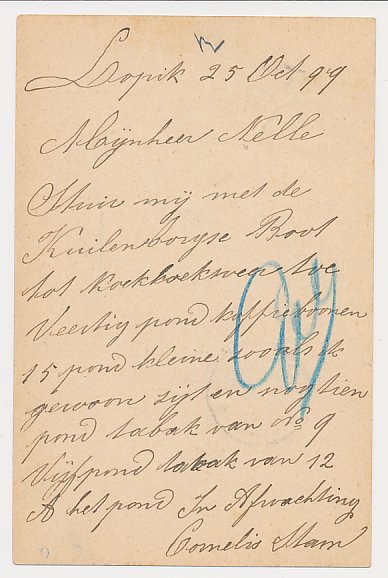 Lopik 25 Oct 99
Mijnheer Nelle
Stuur mij met de
Kuilenborgse Boot
tot Koekkoekweer toe
Veertig pond koffieboonen
15 pond kleine zooals ik
gewoon zijt en nog tien
pond tabak van No 9
Vijf pond tabak van 12
A het pond In Afwachting
Cornelis Stam